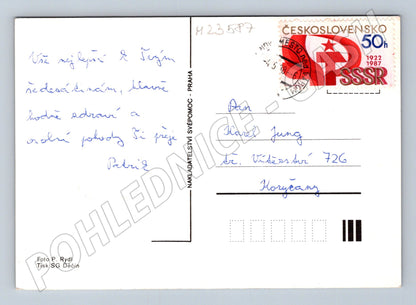 M23587
Vše nejlepší k Tvým
šedesátinám, hlavně
hodně zdraví a
osobní pohody Ti přeje
Petr
Foto P. Rydl
Tisk SG Děčín
NAKLADATELSTVÍ SVÉPOMOC - PRAHA
ČESKOSLOVENSKO
50h
1922
1987
SSSR
Pan
Karel Jung
tř. Vítězství 726
Koryčany
POHLEDNICE -